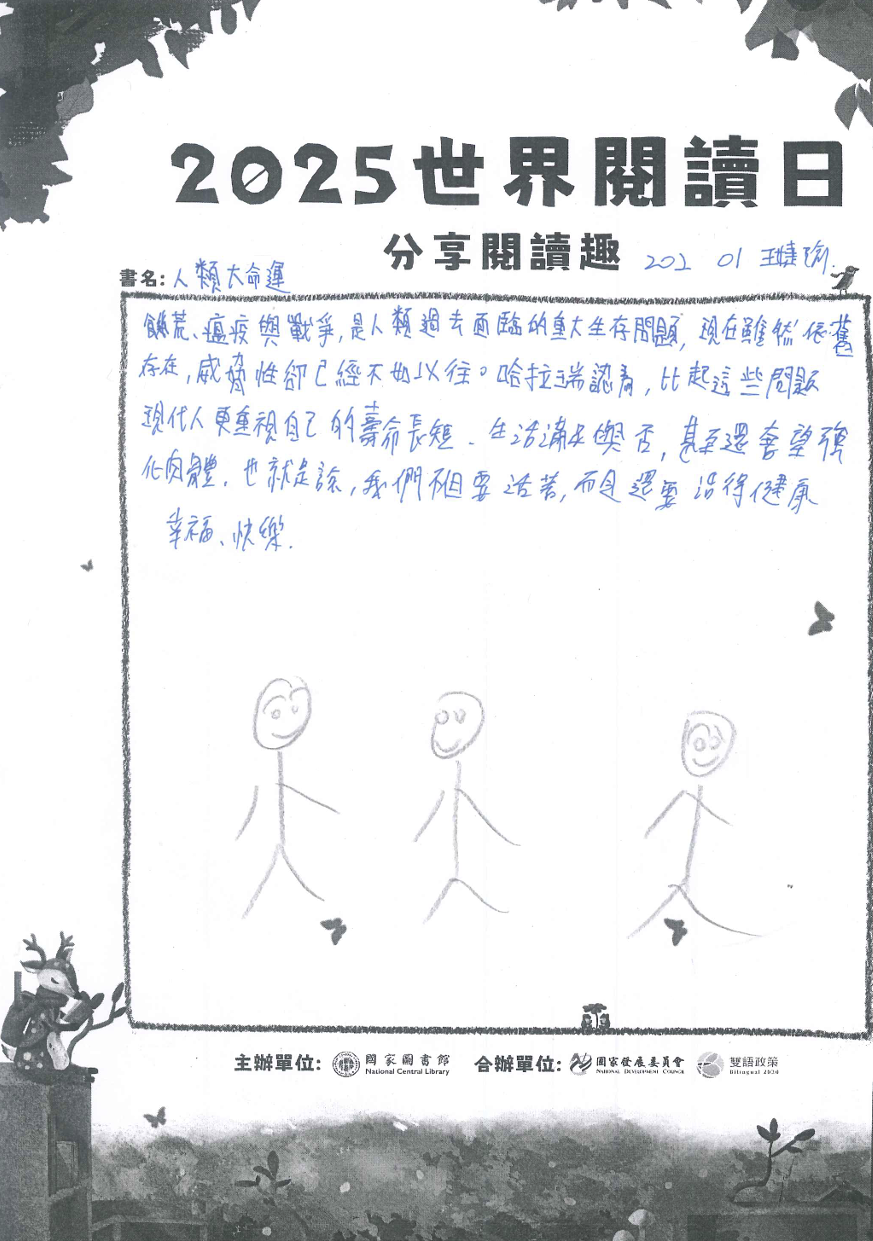 2025世界閱讀日
分享閱讀趣 202 01 王婕瑜.
書名: 人類大命運
饑荒、瘟疫與戰爭,是人類過去面臨的重大生存問題,現在雖然依舊
存在,威脅性卻已經不如以往。哈拉瑞認為,比起這些問題
現代人更重視自己的壽命長短、生活滿足與否,甚至還奢望強
化肉體.也就是說,我們不但要活著,而且還要活得健康
幸福、快樂.
主辦單位: 國家圖書館 National Central Library 合辦單位: 國家發展委員會 National Development Council 雙語政策 Bilingual 2030